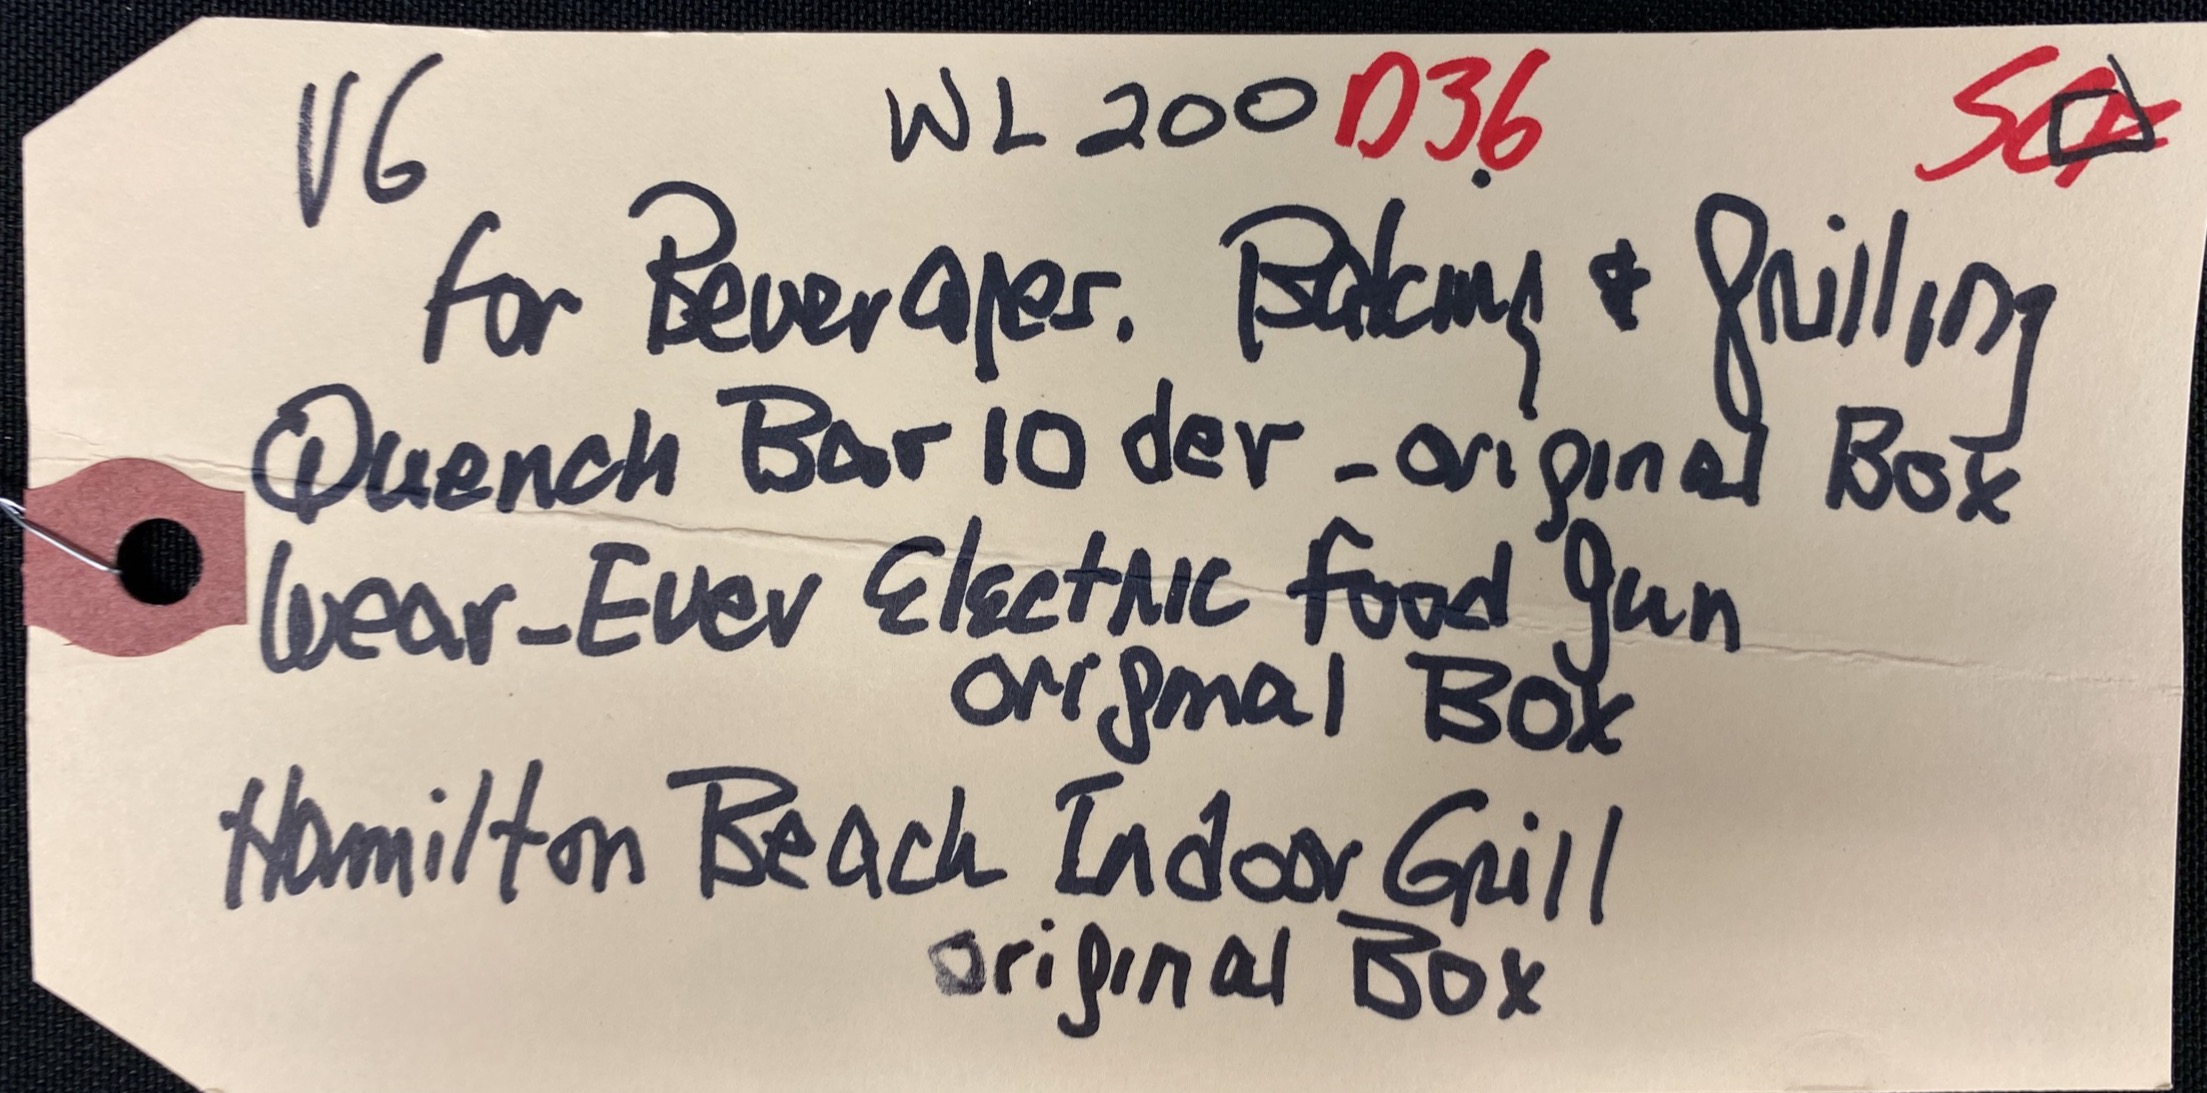 V6 WL 200 D36
for Beverages. Baking & Grilling
Quench Bar 10 der - original Box
Wear-Ever Electric food gun
original Box
Hamilton Beach Indoor Grill
original Box